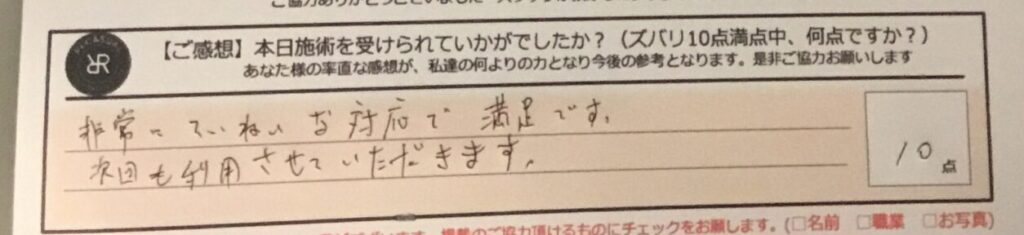 【ご感想】本日施術を受けられていかがでしたか？（ズバリ10点満点中、何点ですか？）
あなた様の率直な感想が、私達の何よりの力となり今後の参考となります。是非ご協力お願いします
非常にていねいな対応で満足です。
次回も利用させていただきます。
10点
掲載のご協力頂けるものにチェックをお願します。(□名前 □職業 □お写真)